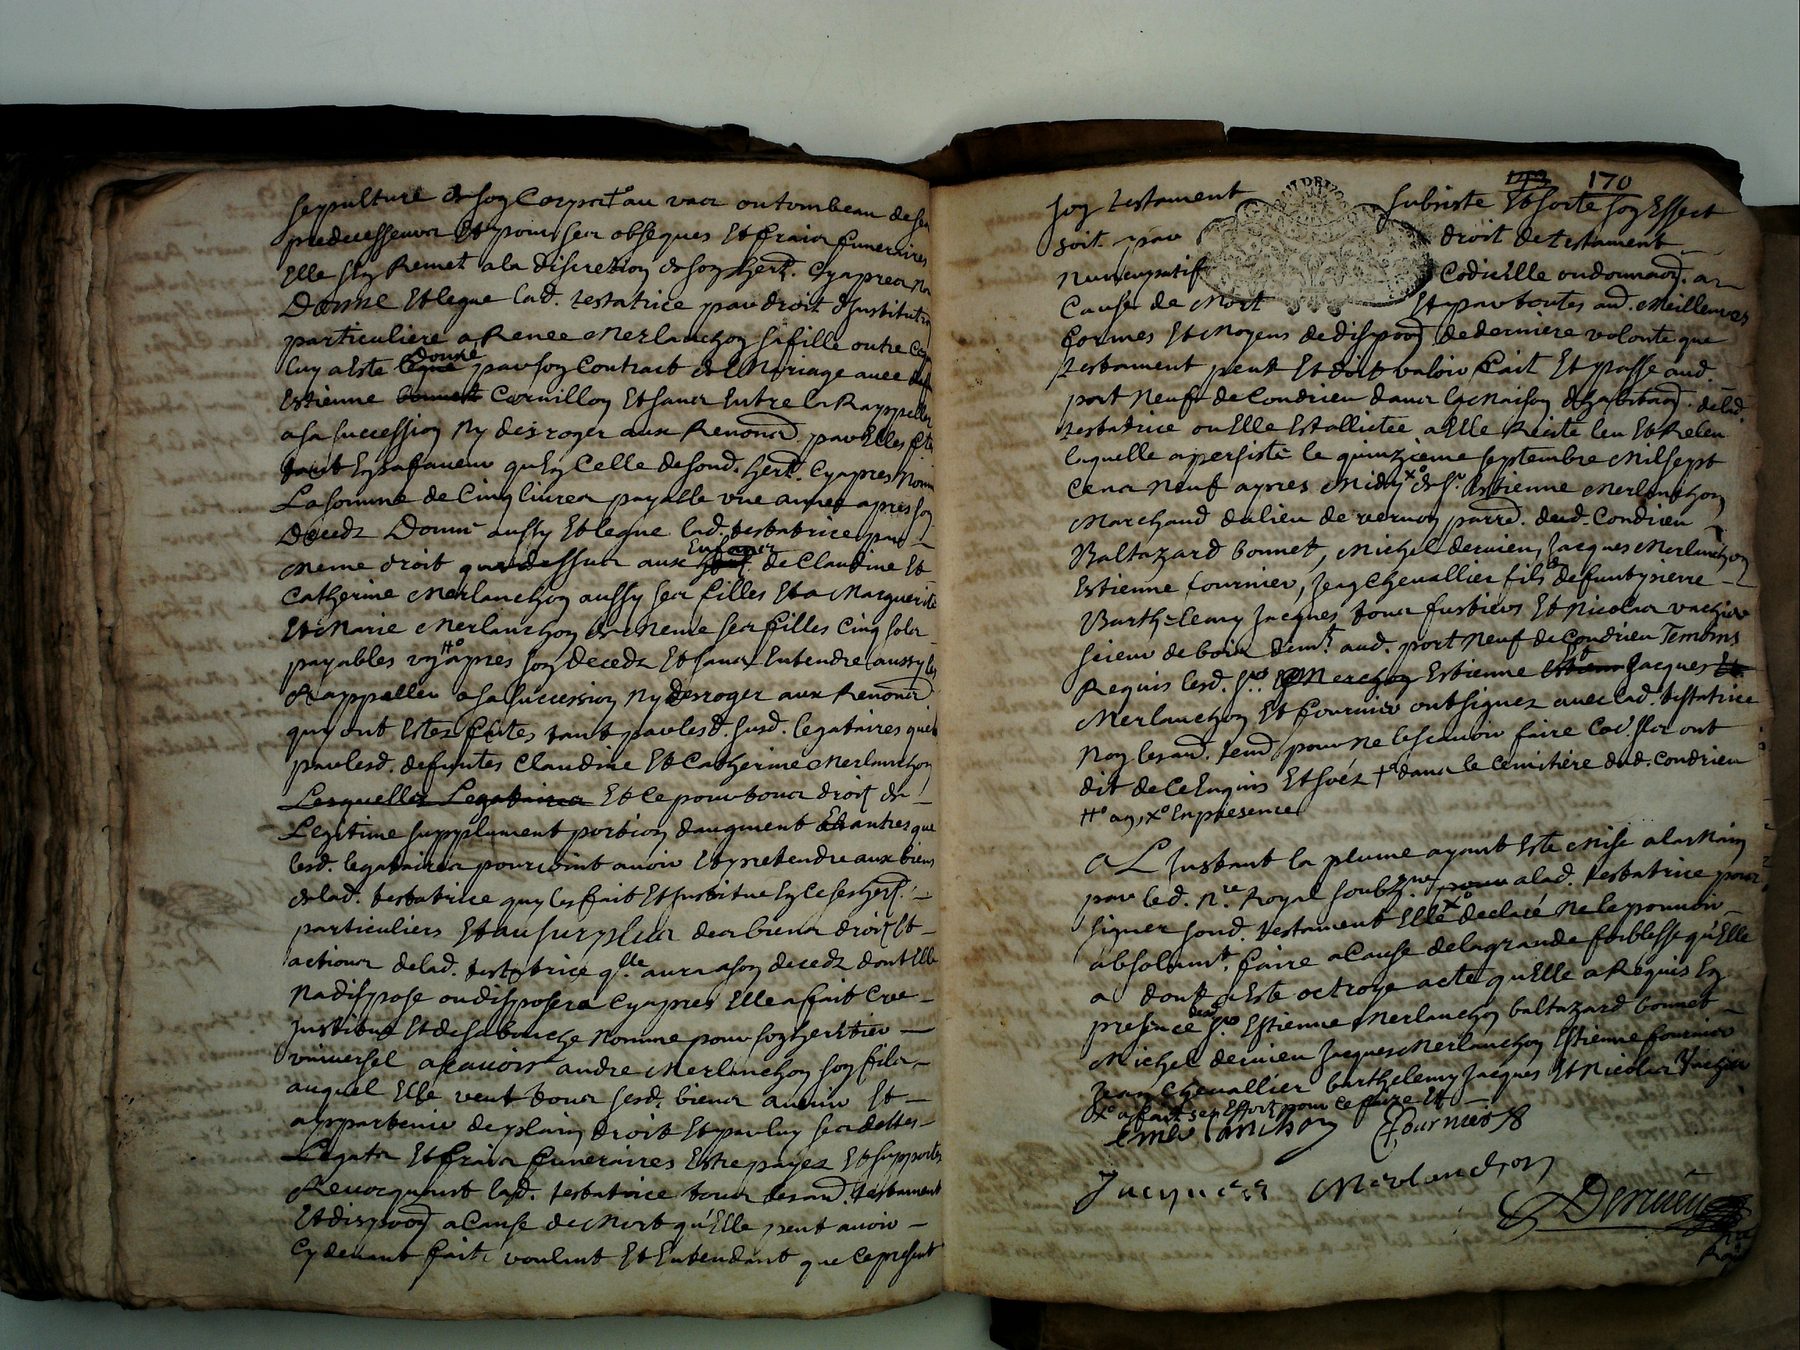 sepulture de son Corps et au vas ou tombeau de ses
predecesseurs Et pour ses obseques Et fraix funeraires
Elle s'en Remet a la discretion de son herit. Cyapres no
Donne Et legue lad. testatrice par droit d'Institution
particuliere a Renee Merlanchon sa fille outre ce
luy a este legué donné par son Contract de Mariage avec
Estienne bonnet Cornillon Et sans Entre la Rappeller
a sa succession ny desroger aux Renonc. par Elles f.
tant En sa faveur qu'En Celle de sond. herit. Cyapres Nom
La somme de Cinq livres payable une année apres son
Decedz Donne aussy Et legue lad. testatrice par
meme droit que dessus aux Enfans de Claudine Et
Catherine Merlanchon aussy ses filles Et a Marguerite
Et Marie Merlanchon de Meme ses filles Cinq solz
payables un Ht° apres son decedz Et sans Entendre aussy les
Rappeller a sa succession ny desroger aux Renonc.
qui ont Estez faites tant par lesd. susd. legataires que
par lesd. defuntes Claudine Et Catherine Merlanchon
Lesquelles Legataires Et Ce pour tous droit de
Legitime supplement portion d'augment Et autres que
lesd. legataires pourroint avoir Et pretendre aux biens
de lad. testatrice quy les fait Et Institue En ce ses herit.
particuliers Et au surplus des biens droitz Et
actions de lad. testatrice q.lle aura a son decedz dont Elle
Na dispose ou disposera Cyapres Elle a fait Cree
Institué Et de sa bouche Nomme pour son heritier
universel a scavoir andre Merlanchon son filz
auquel Elle veut tous sesd. biens avenir Et
appartenir de plain droit Et par luy ses dettes
Legatz Et fraix funeraires Estre payez Et supportes
Revocquant lad. testatrice tous desaud. testament
Et dispoon a Cause de Mort qu'Elle peut avoir
Cydevant fait voulant Et Entendant que Ce present
170
son testament subsiste Et sorte son Effect
soit par droit de testament
nuncupatif Codicille ou donnaon. a
Cause de Mort Et par toutes aud. Meilleures
formes Et Moyens de dispoon de derniere volonté que
testament peut Et doit valoir fait Et passé aud.
port Neuf de Condrieu dans la Maison d'habitaon. de lad.
testatrice ou Elle Est allictée a Elle Reiste leu Et Releu
laquelle a persisté le quinzieme septembre Mil sept
Cens Neuf apres Midy x° de Sr. Estienne Merlanchon
Marchand du lieu de vernon parr. dud. Condrieu
Baltazard bonnet, Michel dervieu, Jacques Merlanchon
Estienne fournier, Jean Chevallier fils de funt pierre
Barthelemy Jacques tous fustiers Et Nicolas vachier
scieur de bois dem.t aud. port Neuf de Condrieu Temoins
Requis lesd. Srs. Merchon Estienne Et Jacques Et
Merlanchon Et fournier ont signez avec lad. testatrice
Non lesaud. tem. pour ne le scavoir faire Co. ilz ont
dit de Ce Enquis Et sués +° dans le Cemitiere dud. Condrieu
Ht° an, x° En presence
A L'Instant la plume ayant Este Mise a la Main
par led. N.re Royal soubz.ne pour a lad. testatrice pour
signer sond. testament Elle x° declaré ne le pouvoir
absolum.t faire a Cause de la grande foiblesse qu'Elle
a dont a Este octroyé acte qu'Elle a Requis En
presence desd. Srs Estienne Merlanchon baltazard bonnet
Michel dervieu Jacques Merlanchon Estienne fournier
Jean Chevallier barthelemy Jacques Et Nicolas Vachier
x° a fait ses Effortz pour Ce faire Et
Fournier
Jacques Merlanchon
Dervieu